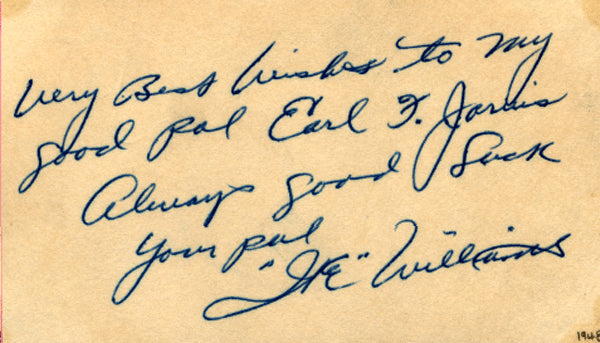 Very Best Wishes to my
good pal Earl F. Jarvis
Always good luck
Your pal
"IKE" Williams
1948